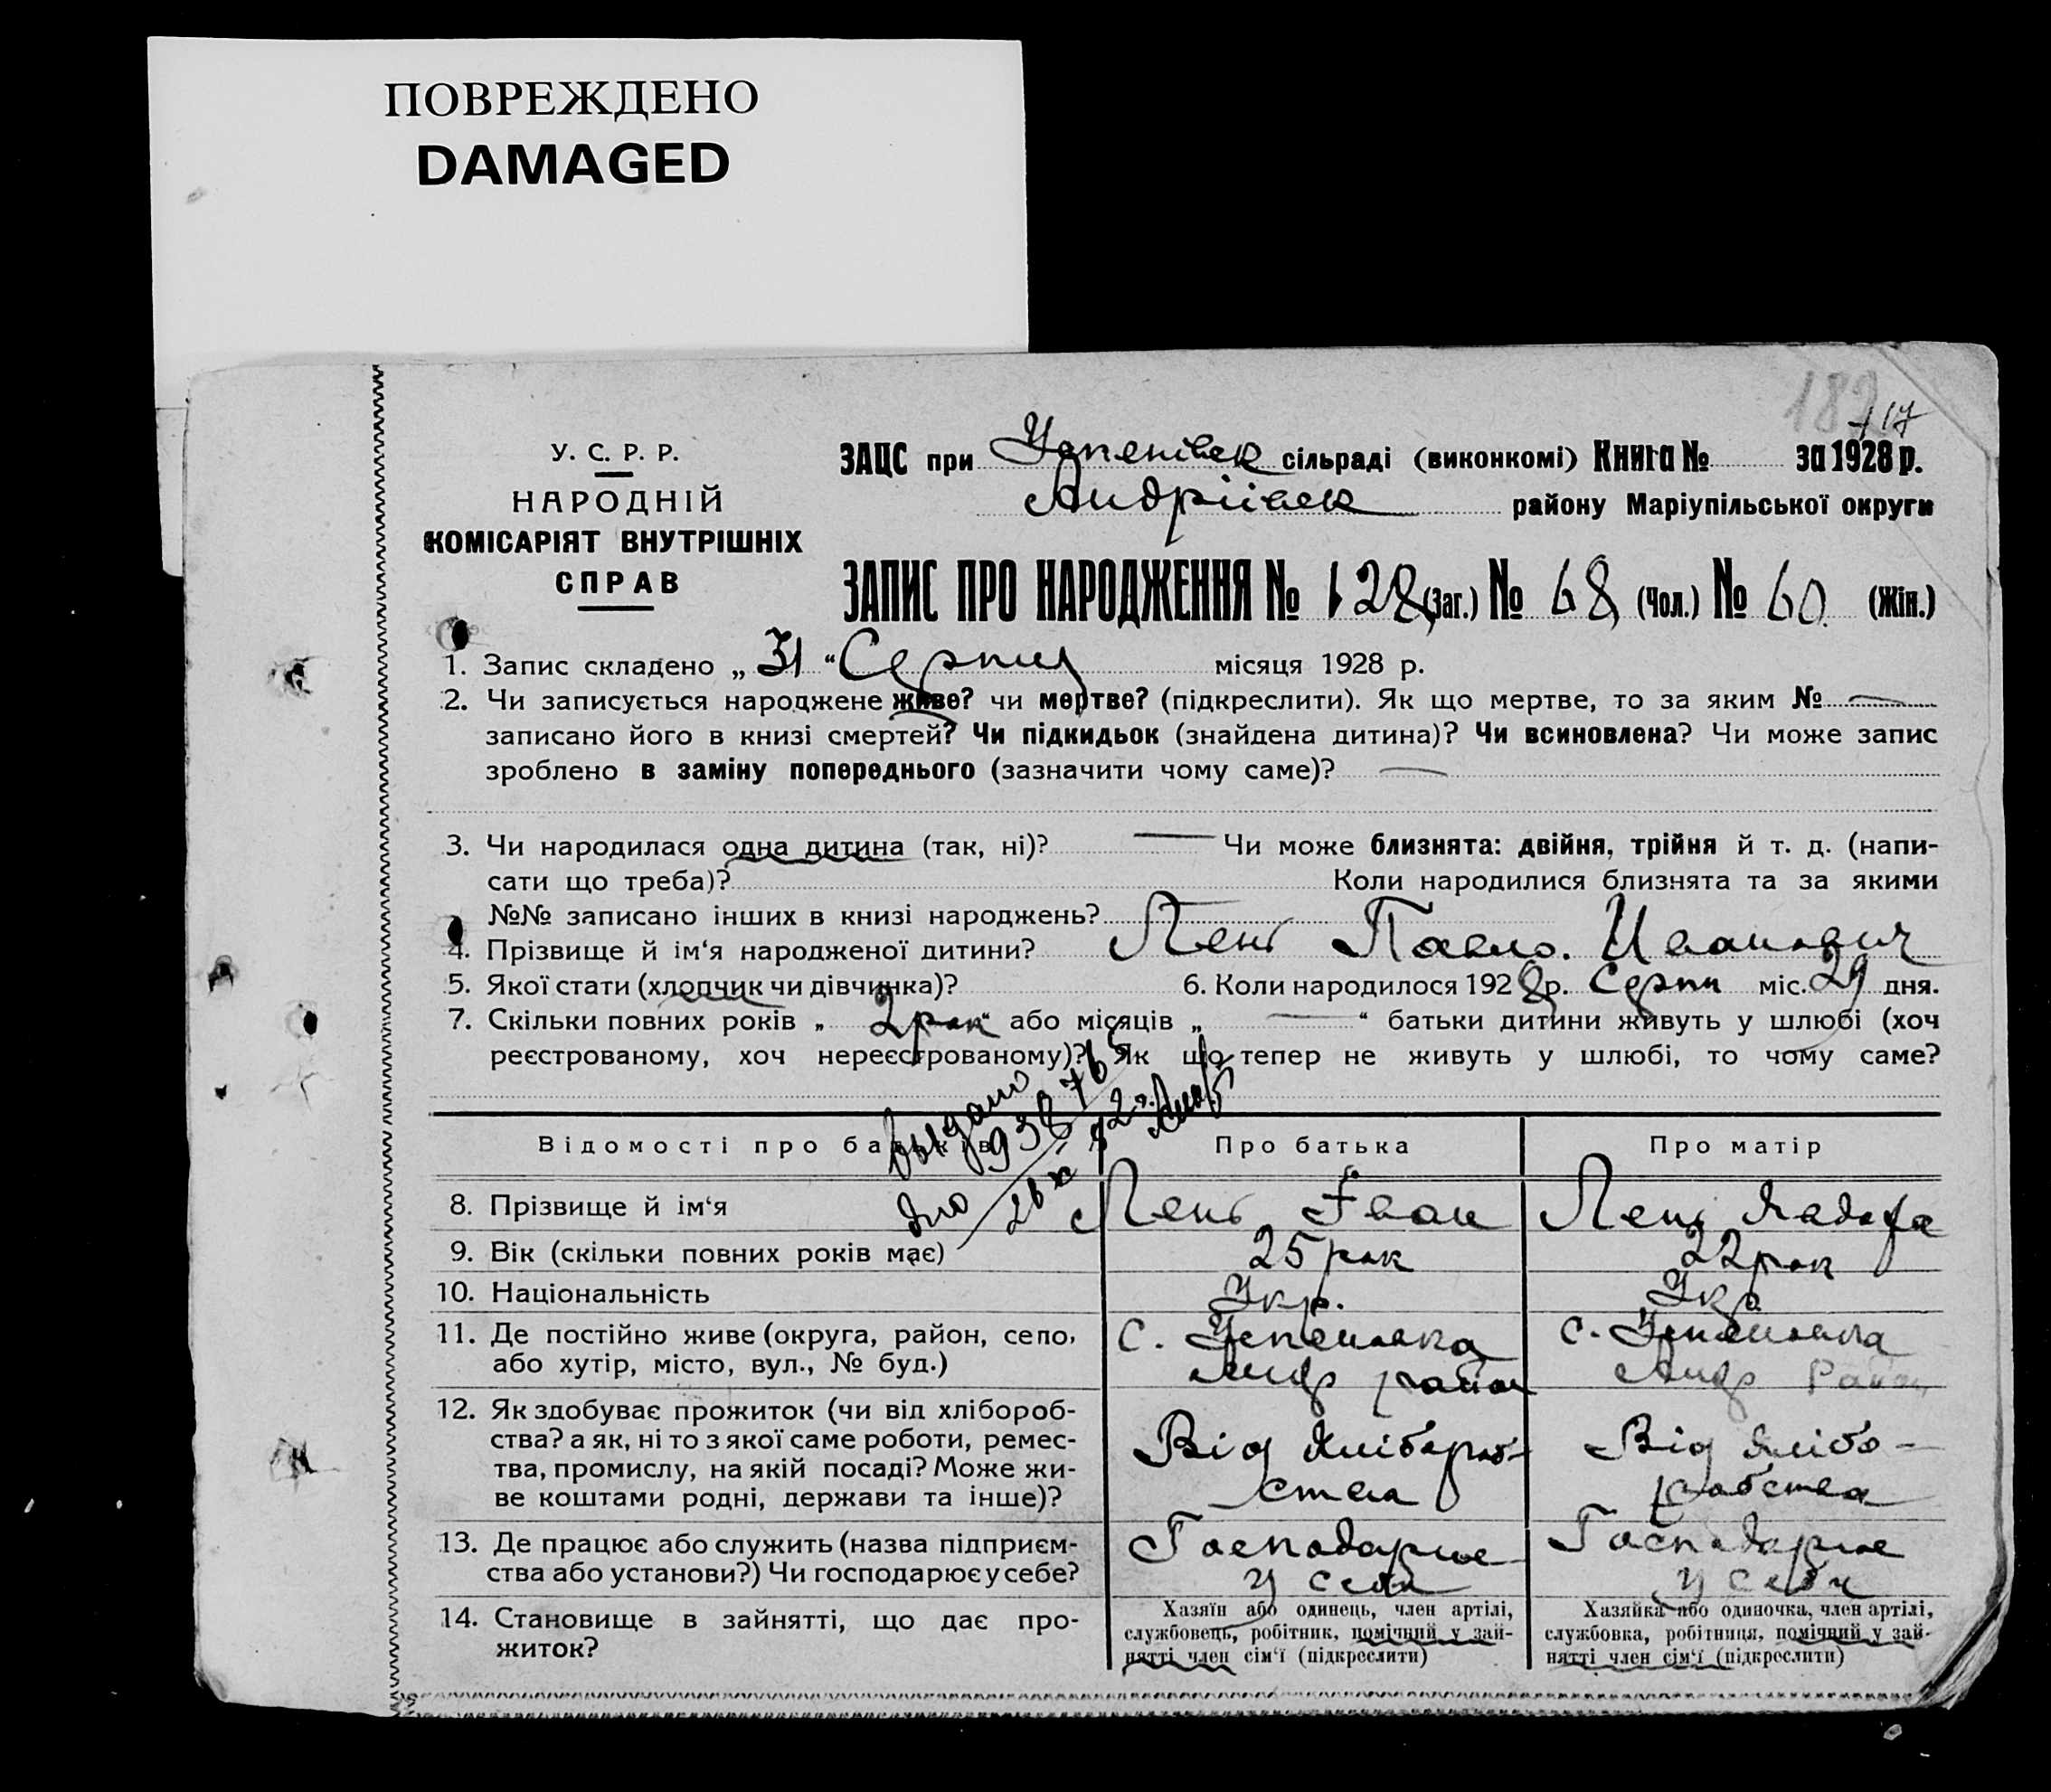 ПОВРЕЖДЕНО
DAMAGED
117
У. С. Р. Р.
НАРОДНІЙ
КОМІСАРІЯТ ВНУТРІШНІХ
СПРАВ
ЗАЦС при Успенівск сільраді (виконкомі) Книга № за 1928 р.
Андріївск району Маріупільської округи
ЗАПИС ПРО НАРОДЖЕННЯ № 128 (Заг.) № 68 (Чол.) № 60 (Жін.)
1. Запис складено „ 31 “ Серпня місяця 1928 р.
2. Чи записується народжене живе? чи мертве? (підкреслити). Як що мертве, то за яким № —
записано його в книзі смертей? Чи підкидьок (знайдена дитина)? Чи всиновлена? Чи може запис
зроблено в заміну попереднього (зазначити чому саме)? —
3. Чи народилася одна дитина (так, ні)? — Чи може близнята: двійня, трійня й т. д. (напи-
сати що треба)? Коли народилися близнята та за якими
№№ записано інших в книзі народжень?
4. Прізвище й ім‘я народженої дитини? Павло. Иванович
5. Якої стати (хлопчик чи дівчинка)? 6. Коли народилося 1928 р. Серпн міс. 29 дня.
7. Скільки повних років „ 2 рок “ або місяців „ — “ батьки дитини живуть у шлюбі (хоч
реєстрованому, хоч нереєстрованому)? Як що тепер не живуть у шлюбі, то чому саме?
Відомості про батьків Про батька Про матір
8. Прізвище й ім‘я Іван
9. Вік (скільки повних років має) 25 рок 22 рок
10. Національність Укр. Укр
11. Де постійно живе (округа, район, село, С. Успеновка С. Успеновка
або хутір, місто, вул., № буд.) Андр район Андр Район
12. Як здобуває прожиток (чи від хлібороб- Від Хлібороб- Від Хлібо-
ства? а як, ні то з якої саме роботи, ремес- ства робства
тва, промислу, на якій посаді? Може жи-
ве коштами родні, держави та інше)?
13. Де працює або служить (назва підприєм- Господарює Господарює
ства або установи?) Чи господарює у себе? у себя у себя
14. Становище в зайнятті, що дає про- Хазяїн або одинець, член артілі, Хазяйка або одиночка, член артілі,
житок? службовець, робітник, помічний у зай- службовка, робітниця, помічний у зай-
нятті член сім‘ї (підкреслити) нятті член сім‘ї (підкреслити)